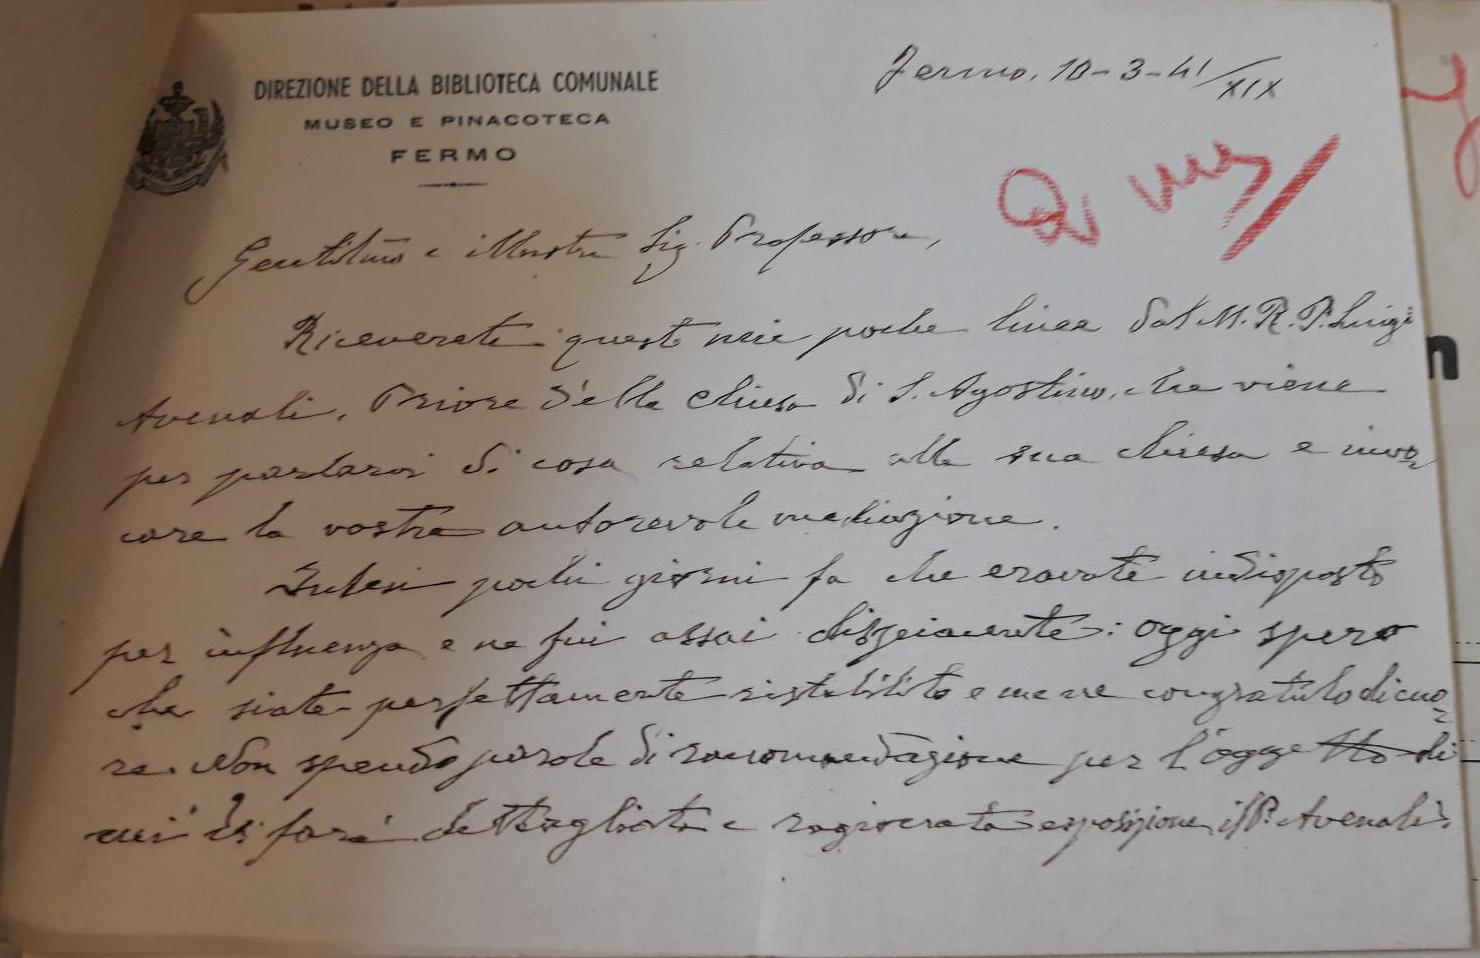 DIREZIONE DELLA BIBLIOTECA COMUNALE
MUSEO E PINACOTECA
FERMO
Fermo, 10-3-41/XIX
Gentilmo e illustre Sig. Professore,
Riceverete queste mie poche linee dal M. R. P. Luigi
Avenali, Priore della Chiesa di S. Agostino, che viene
per parlarvi di cosa relativa alla sua chiesa e invo-
care la vostra autorevole mediazione.
Intesi pochi giorni fa che eravate indisposto
per influenza e ne fui assai dispiacente: oggi spero
che siate perfettamente ristabilito e me ne congratulo di cuo-
re. Non spendo parole di raccomandazione per l'oggetto di
cui Vi farà dettagliata e ragionata esposizione il P. Avenali:
n